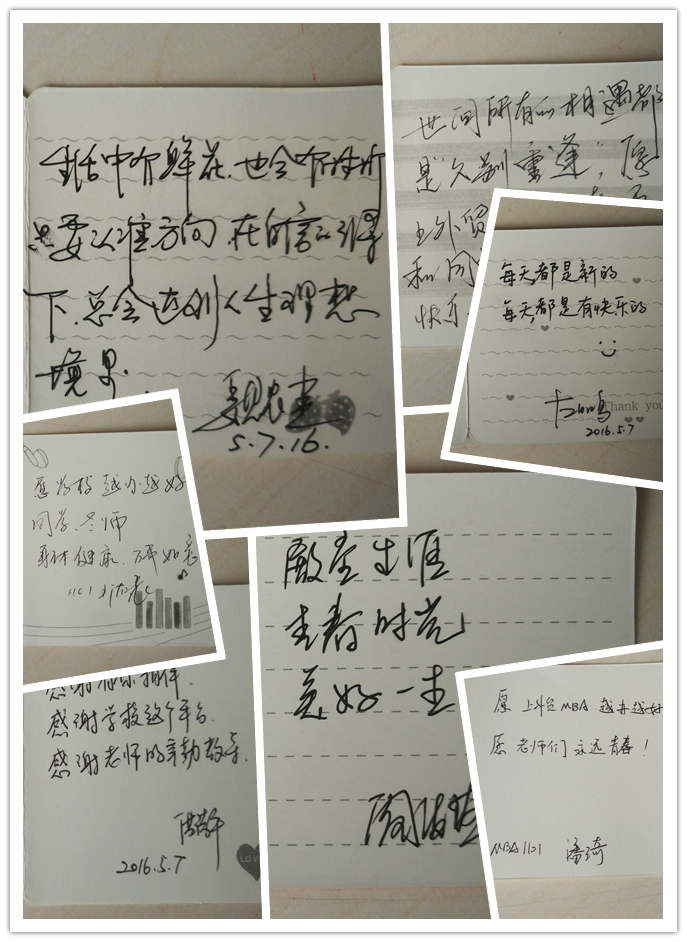 生活中有鲜花.也会有
只要认准方向.在的引
下.总会达到人生理想
境界.
5.7.16.
世间所有的相遇都
是“久别重逢”，愿
上外贸
和同
快乐
每天都是新的
每天都是有快乐的
Thank you
2016.5.7
愿学校越办越好
同学、老师
身体健康、万事如意
1101
殿堂生涯
青春时光
美好一生
感谢学校这个平台.
感谢老师的辛勤教导.
2016.5.7
LOVE
愿 上外贸MBA 越办越好
愿 老师们 永远青春！
MBA1101 潘琦